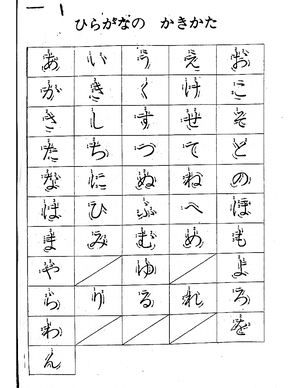 ひらがなの かきかた
あ い う え お
か き く け こ
さ し す せ そ
た ち つ て と
な に ぬ ね の
は ひ ふ へ ほ
ま み む め も
や ゆ よ
ら り る れ ろ
わ を
ん